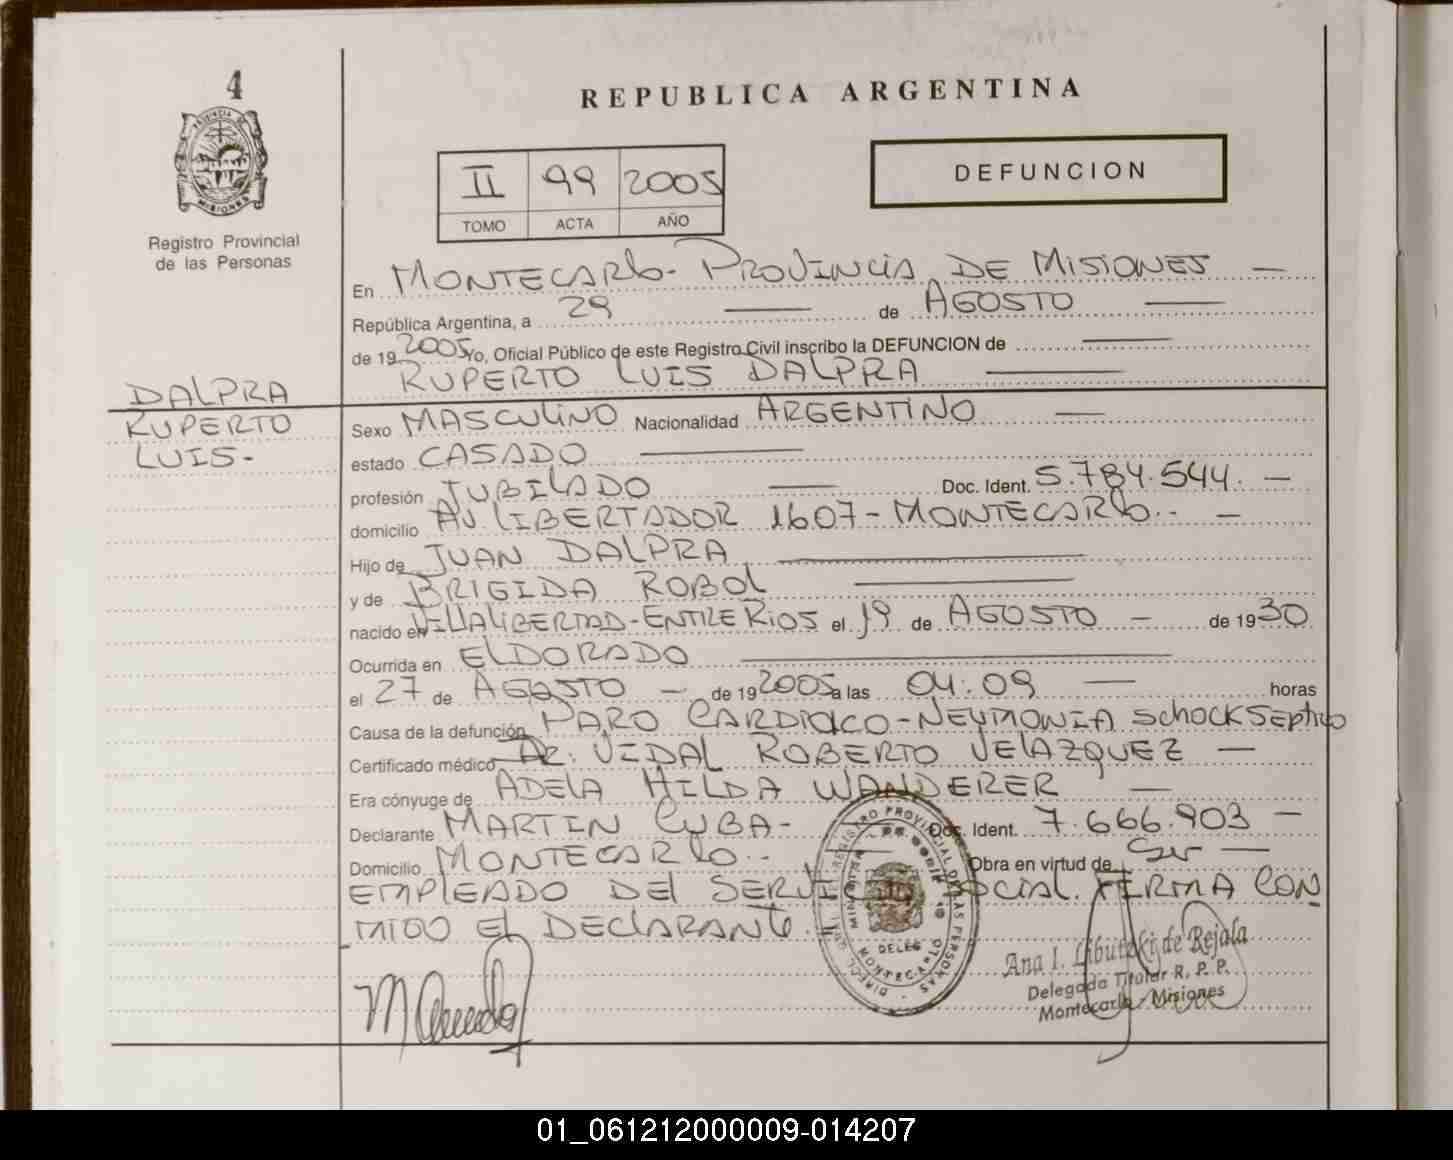 4
REPUBLICA ARGENTINA
PROVINCIA DE
MISIONES
Registro Provincial
de las Personas
II 99 2005
TOMO ACTA AÑO
DEFUNCION
En MONTECARLO - PROVINCIA DE MISIONES —
República Argentina, a 29 — de AGOSTO —
de 19 2005 Yo, Oficial Público de este Registro Civil inscribo la DEFUNCION de —
RUPERTO LUIS DALPRA —
DALPRA
RUPERTO
LUIS.-
Sexo MASCULINO Nacionalidad ARGENTINO —
estado CASADO —
profesión JUBILADO — Doc. Ident. 5.784.544. —
domicilio AV. LIBERTADOR 1607 - MONTECARLO.. —
Hijo de JUAN DALPRA —
y de BRIGIDA ROBOL —
nacido en VILLA LIBERTAD - ENTRE RIOS el 19 de AGOSTO — de 1930
Ocurrida en ELDORADO —
el 27 de AGOSTO — de 19 2005 a las 04:09 — horas
Causa de la defunción PARO CARDIACO - NEUMONIA SCHOCK SEPTICO
Certificado médico Dr: VIDAL ROBERTO VELAZQUEZ —
Era cónyuge de ADELA HILDA WANDERER —
Declarante MARTIN CUBA - Doc. Ident. 7.666.903 —
Domicilio MONTECARLO.. — Obra en virtud de Ser —
EMPLEADO DEL SERVICIO SOCIAL. FIRMA CON
MIGO EL DECLARANTE.
Ana I. Libutzki de Rejala
Delegada Titular R. P. P.
Montecarlo - Misiones
01_061212000009-014207